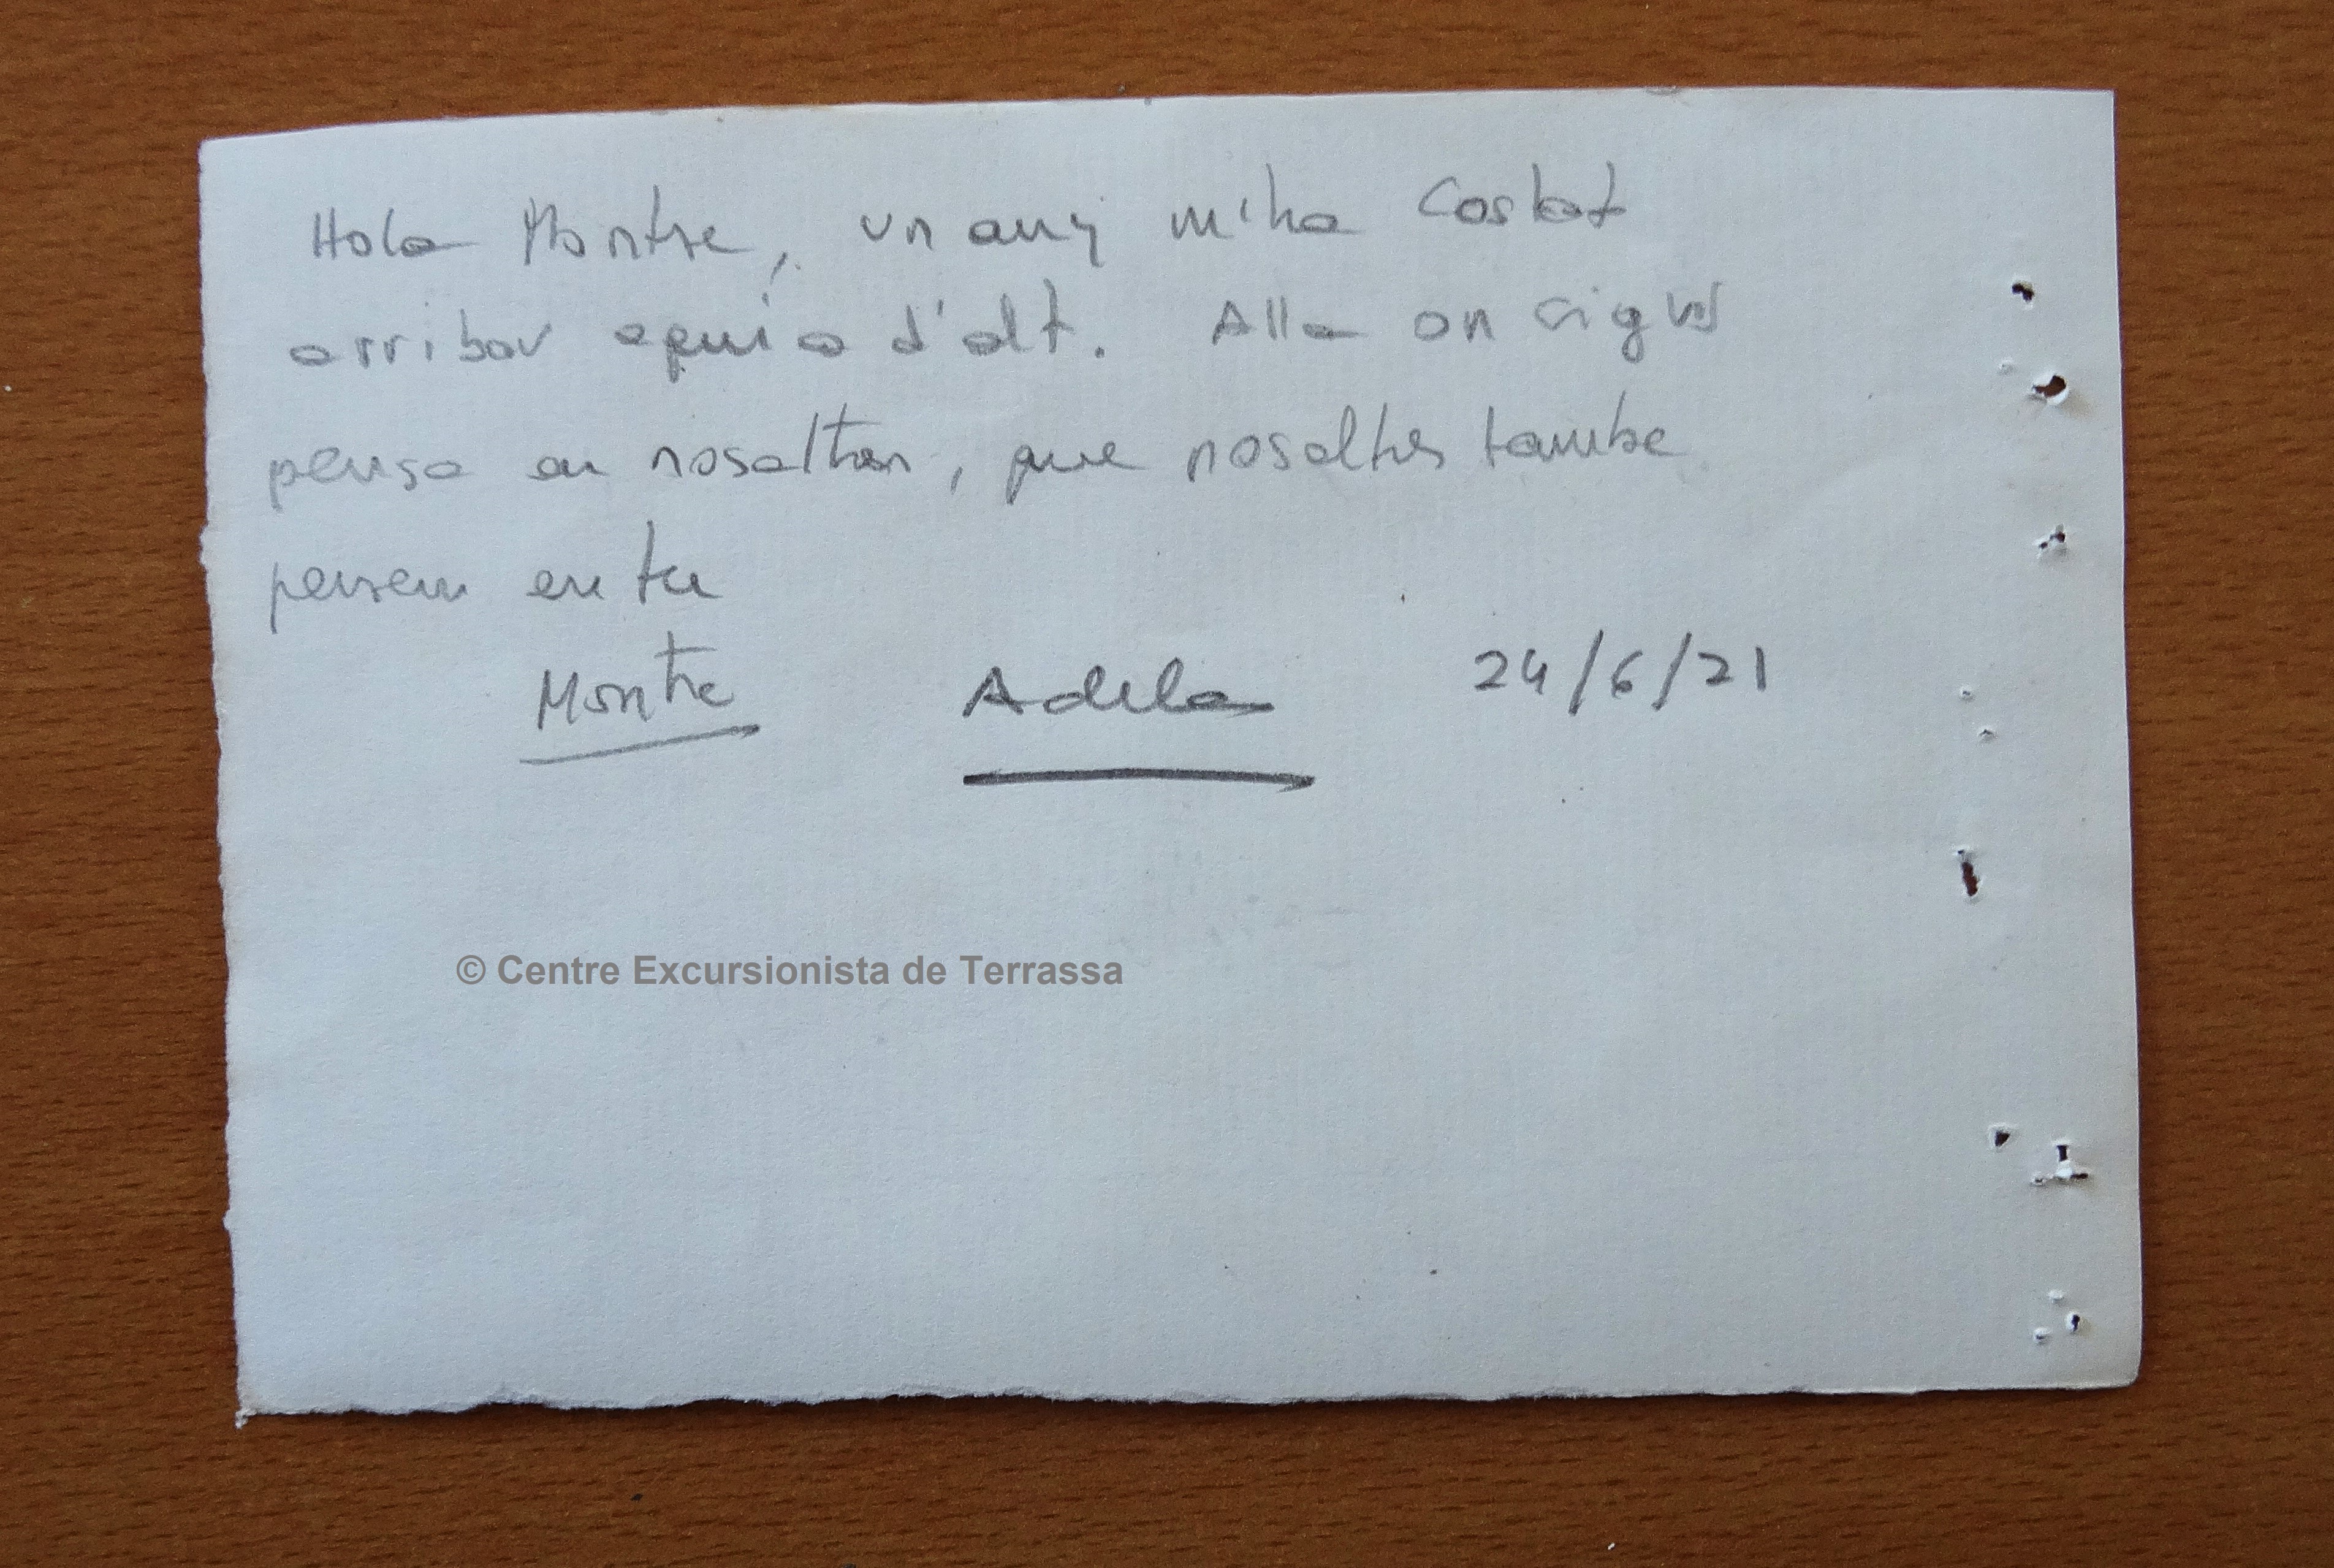 Hola Montse, un any m'ha Costat
arribar aqui a d'alt. Alla on siguis
pensa en nosaltres, que nosaltres tambe
pensem en tu
Montse Adela 24/6/21
© Centre Excursionista de Terrassa